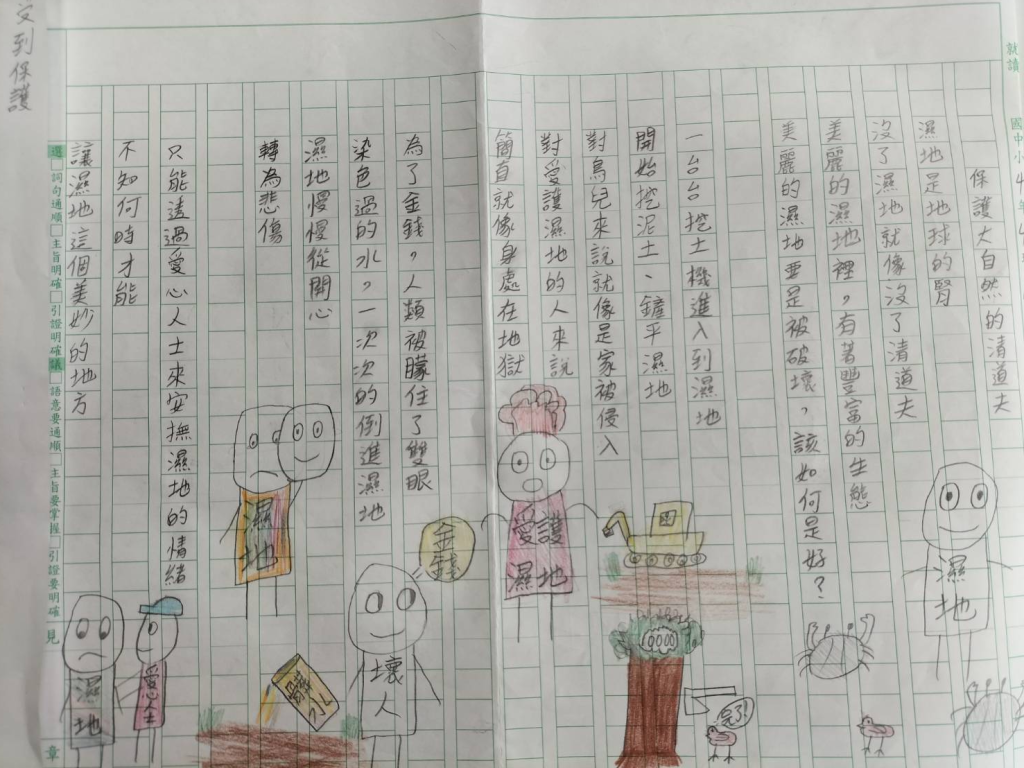 保護大自然的清道夫
濕地是地球的腎
沒了濕地就像沒了清道夫
美麗的濕地裡，有著豐富的生態
美麗的濕地要是被破壞，該如何是好？
一台台挖土機進入到濕地
開始挖泥土、鏟平濕地
對鳥兒來說就像是家被侵入
對愛護濕地的人來說
簡直就像身處在地獄
為了金錢，人類被矇住了雙眼
染色過的水，一次次的倒進濕地
濕地慢慢從開心
轉為悲傷
只能透過愛心人士來安撫濕地的情緒
不知何時才能
讓濕地這個美妙的地方
受到保護
濕地
完了!
愛護
濕地
金錢
壞人
濕地
濕地